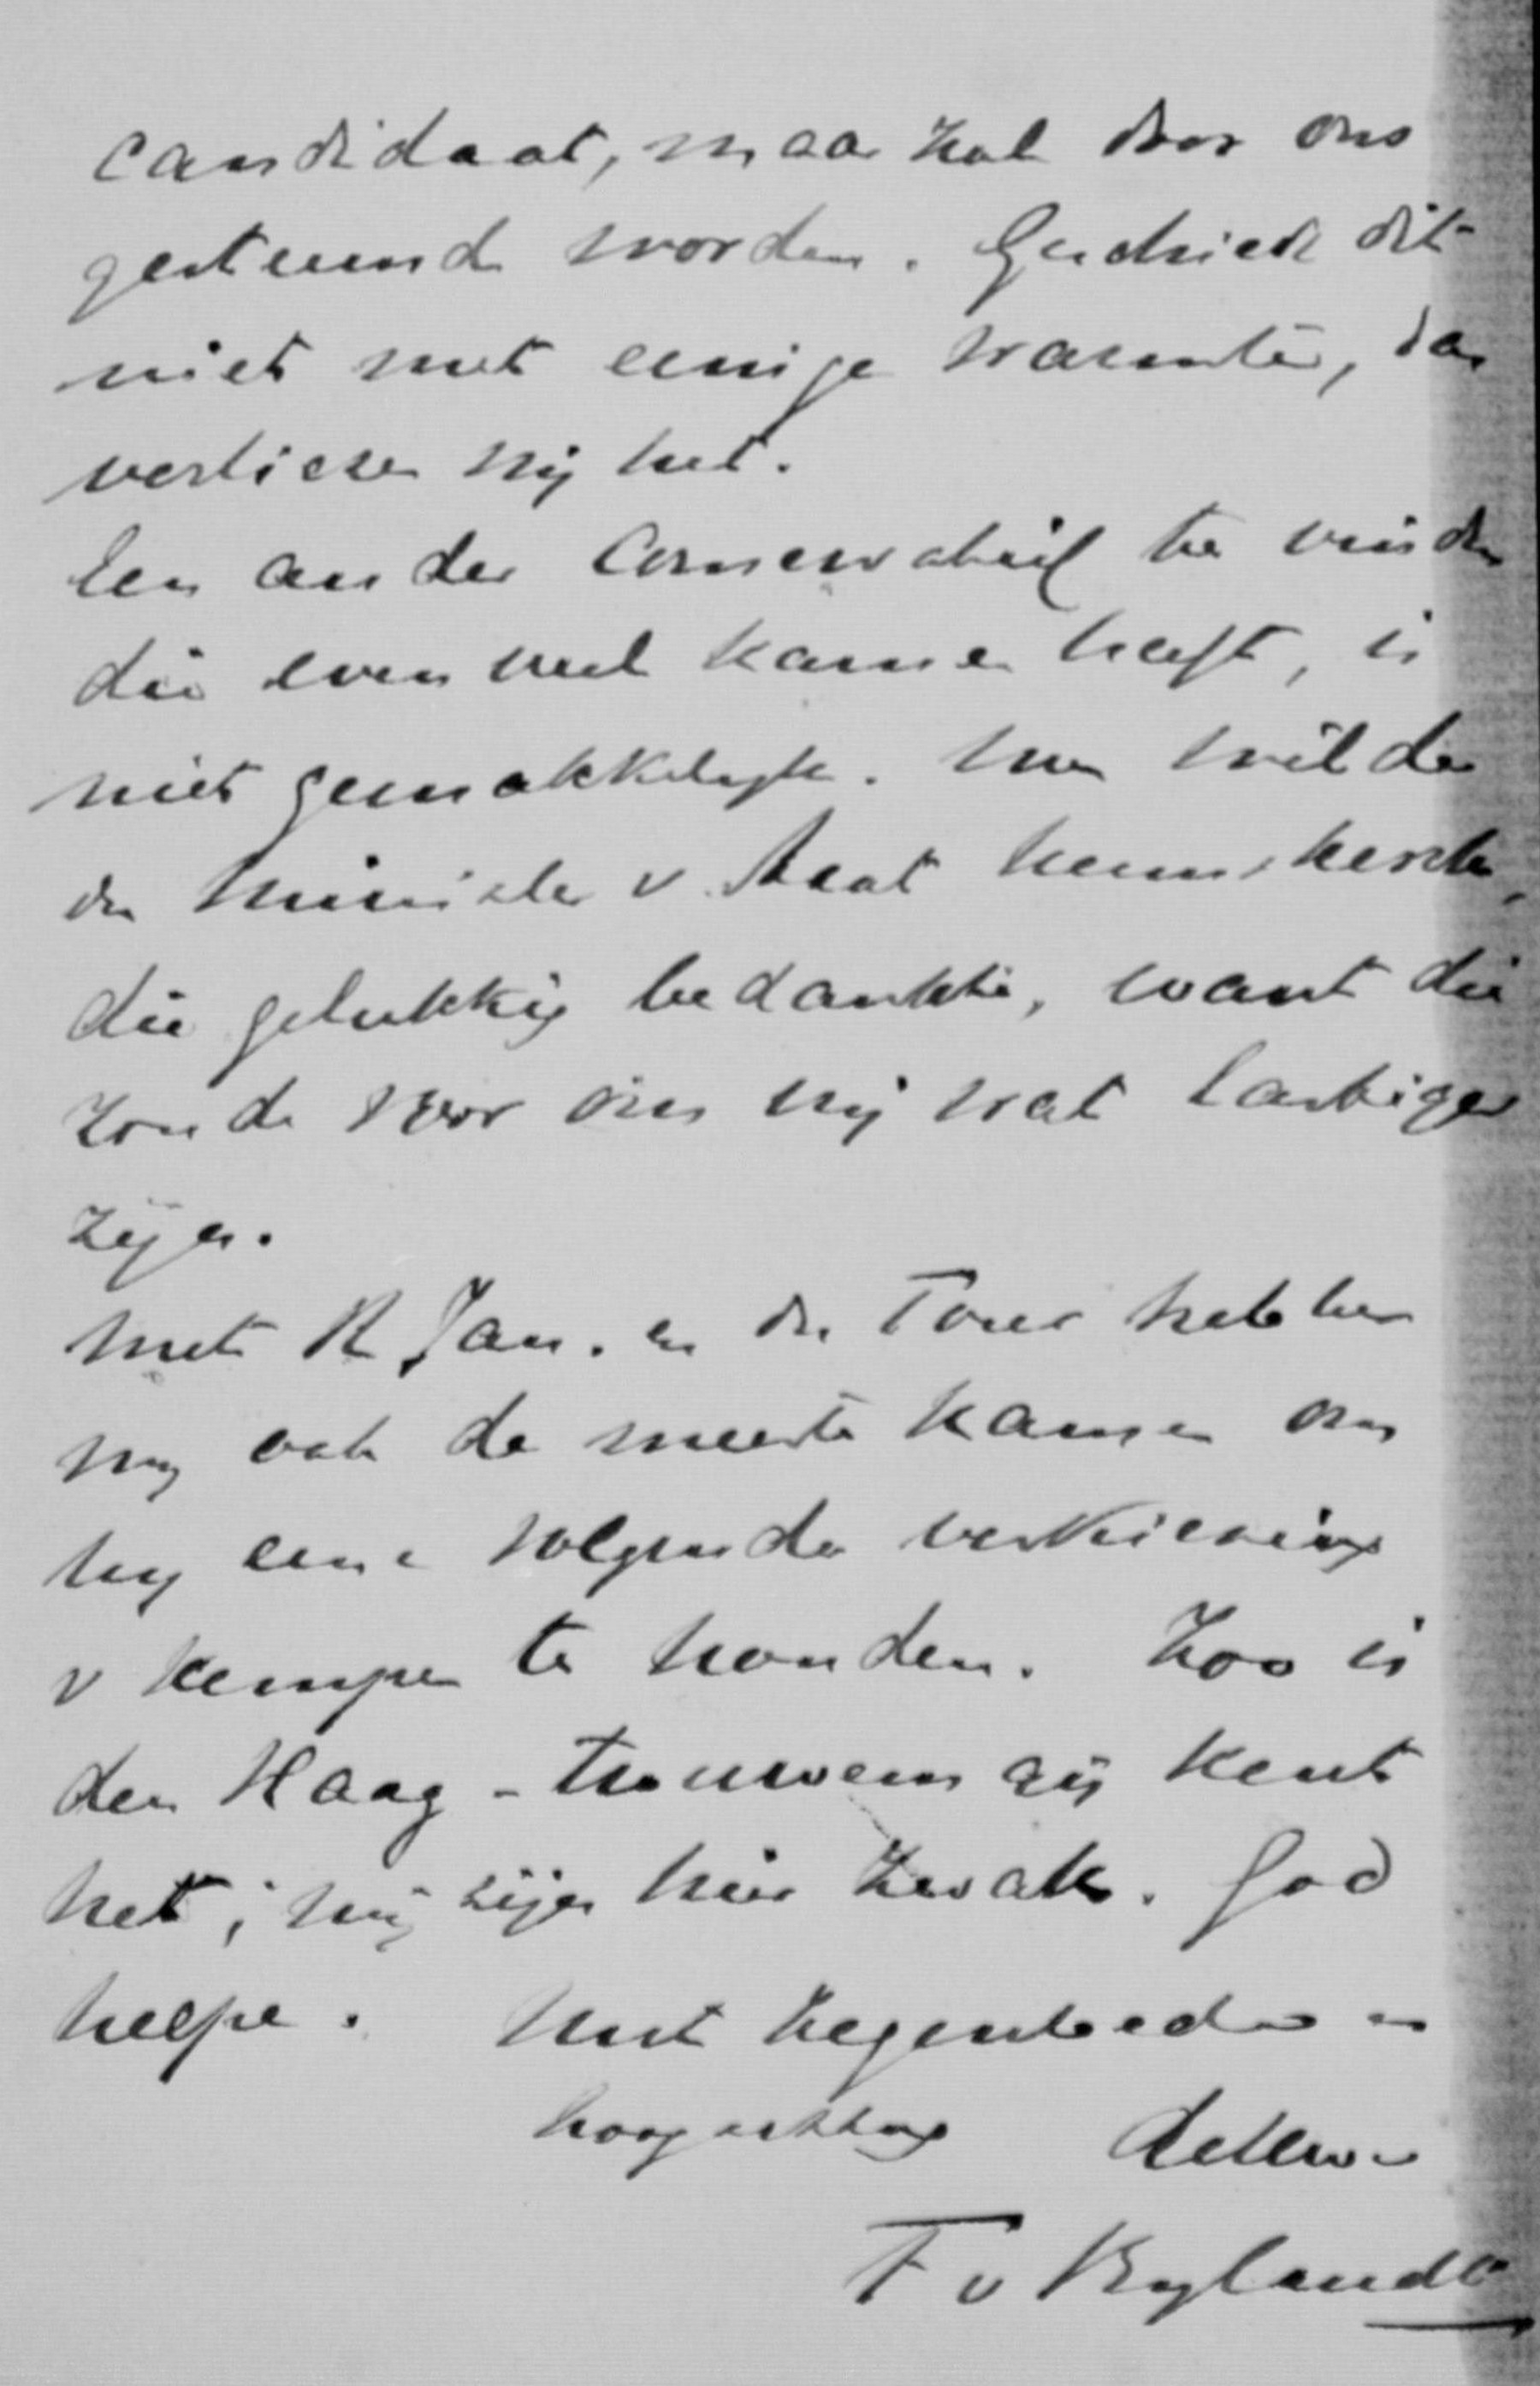 candidaat, maar zal door ons
gesteund worden. Geschiedt dit
niet met eenige warmte, dan
verliezen wij het.
Een ander Conservatief te vinden
die even veel kansen heeft, is
niet gemakkelijk. Men wilde
den Minister v. Staat Heemskerk,
die gelukkig bedankte, want die
zoude voor ons vrij wat lastiger
zijn.
Met R Jan. en du Tour hebben
wij ook de meeste kansen om
bij eene volgende verkiezing
v Kempen te houden. Zoo is
den Haag - trouwens gij kent
het; wij zijn hier zwak. God
helpe. Met zegenbede en
hoogachting
F v Bylandt